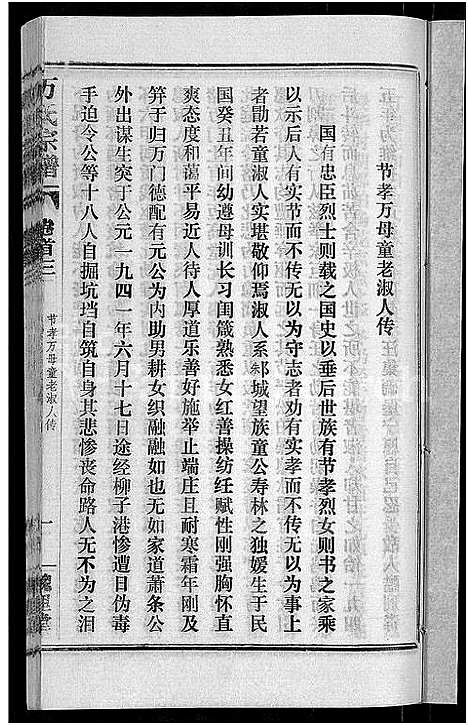 节孝万母童老淑人传
国有忠臣烈士则载之国史以垂后世族有节孝烈女则书之家乘
以示后人有实节而不传无以为守志者劝有实孝而不传无以为事上
者勖若童淑人实堪敬仰焉淑人系邾城望族童公寿林之独嫒生于民
国癸丑年间幼遵母训长习闺箴熟悉女红善操纺纴赋性刚强胸怀直
爽态度和蔼平易近人待人厚道乐善好施举止端庄且耐寒霜年刚及
笄于归万门德配有元公为内助男耕女织融融如也无如家道萧条公
外出谋生突于公元一九四一年六月十七日途经柳子港惨遭日伪毒
手迫令公等十八人自掘坑垱自筑自身其悲惨丧命路人无不为之泪
万氏宗谱
卷首三
节孝万母童老淑人传
一
槐里堂